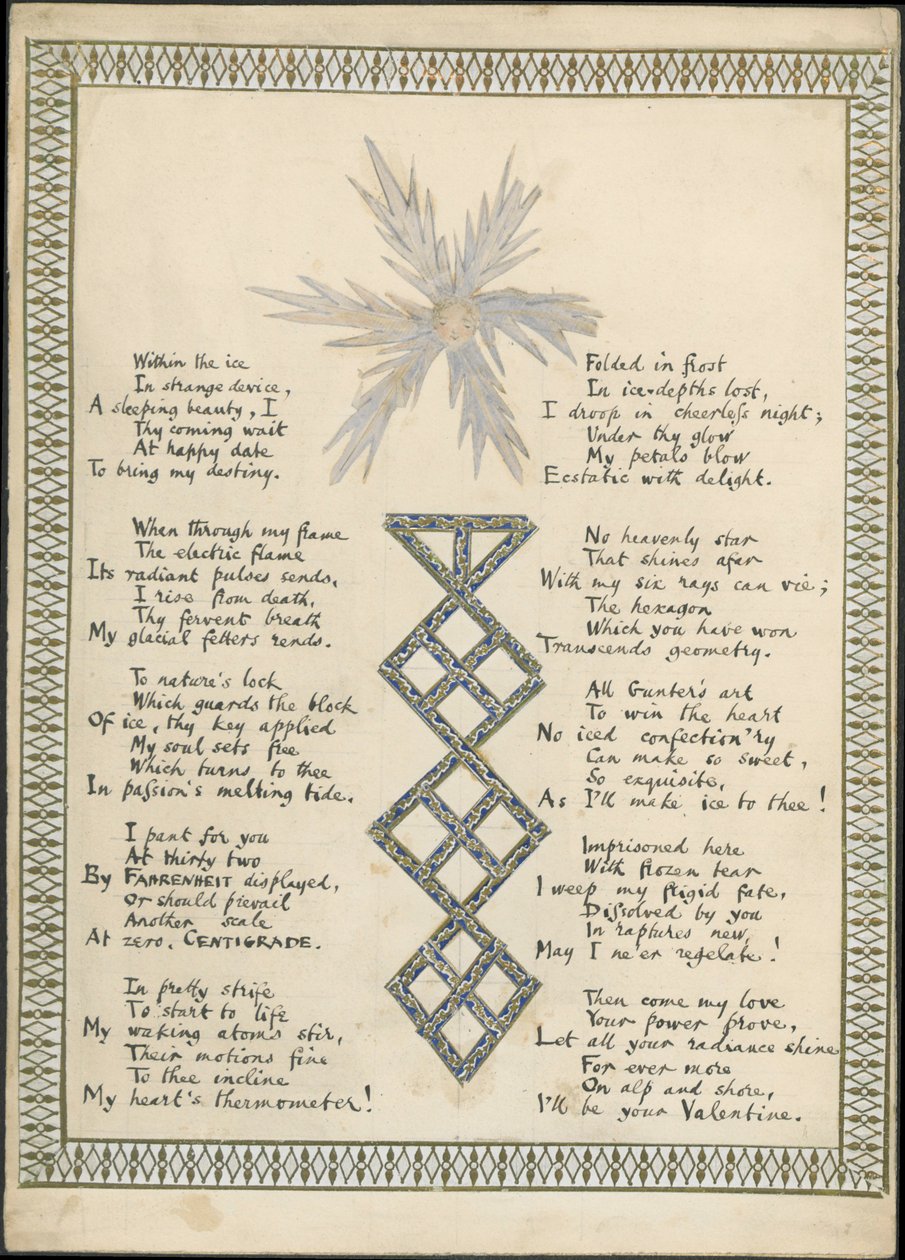 Within the ice
In strange device,
A sleeping beauty, I
Thy coming wait
At happy date
To bring my destiny.
When through my frame
The electric flame
Its radiant pulses sends,
I rise from death,
Thy fervent breath
My glacial fetters rends.
To nature's lock
Which guards the block
Of ice, thy key applied
My soul sets free
Which turns to thee
In paſsion's melting tide.
I pant for you
At thirty two
By FAHRENHEIT displayed,
Or should prevail
Another scale
At zero, CENTIGRADE.
In pretty strife
To start to life
My waking atoms stir,
Their motions fine
To thee incline
My heart's thermometer!
Folded in frost
In ice-depths lost,
I droop in cheerleſs night;
Under thy glow
My petals blow
Ecstatic with delight.
No heavenly star
That shines afar
With my six rays can vie;
The hexagon
Which you have won
Transcends geometry.
All Gunter's art
To win the heart
No iced confection'ry
Can make so sweet,
So exquisite,
As I'll make ice to thee!
Imprisoned here
With frozen tear
I weep my frigid fate,
Diſsolved by you
In raptures new,
May I ne'er regelate!
Then come my love
Your power prove,
Let all your radiance shine
For ever more
On alp and shore,
I'll be your Valentine.